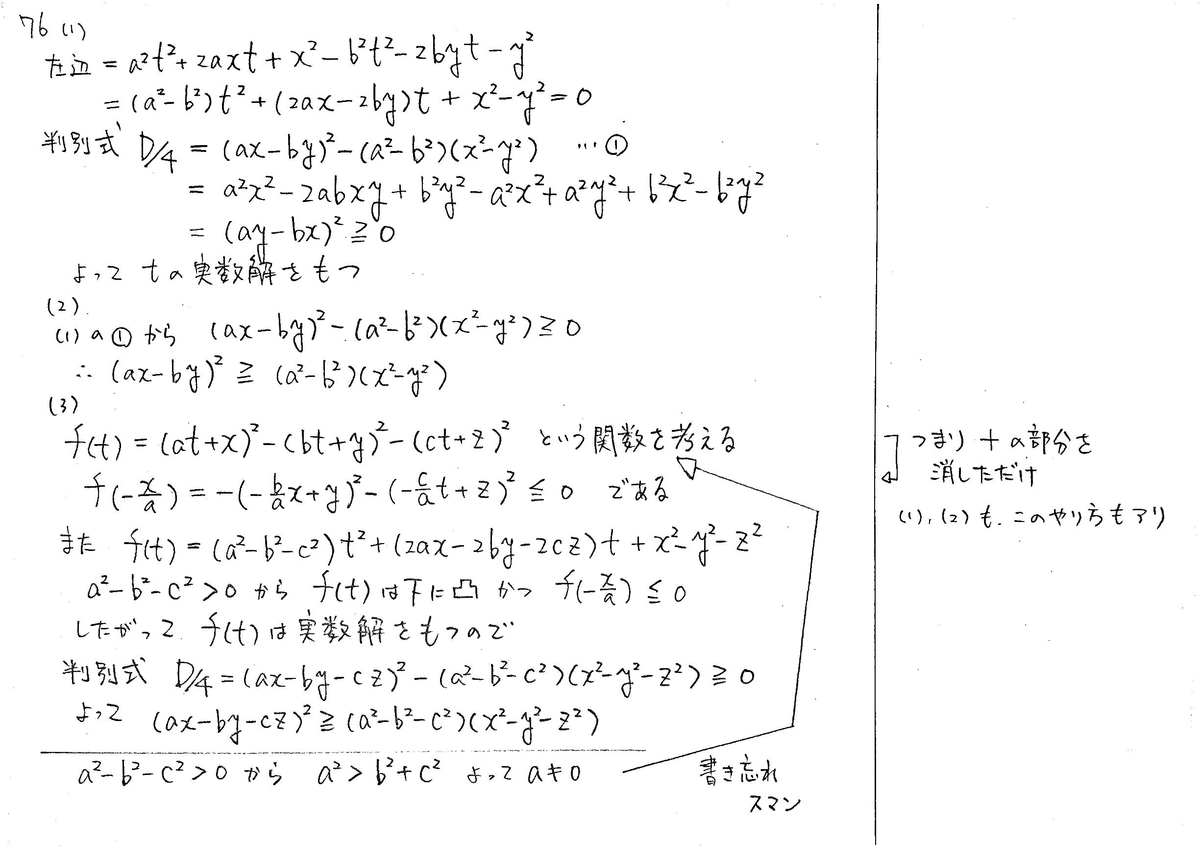 76 (1)
左辺 = a²t²+2axt+x²-b²t²-2byt-y²
= (a²-b²)t²+(2ax-2by)t+x²-y²=0
判別式 D/4 = (ax-by)²-(a²-b²)(x²-y²) …①
= a²x²-2abxy+b²y²-a²x²+a²y²+b²x²-b²y²
= (ay-bx)²≧0
よって tの実数解をもつ
(2)
(1)の①から (ax-by)²-(a²-b²)(x²-y²)≧0
∴ (ax-by)²≧(a²-b²)(x²-y²)
(3)
f(t)=(at+x)²-(bt+y)²-(ct+z)² という関数を考える
f(-x/a)=-(-b/a x+y)²-(-c/a t+z)²≦0 である
また f(t)=(a²-b²-c²)t²+(2ax-2by-2cz)t+x²-y²-z²
a²-b²-c²>0 から f(t)は下に凸 かつ f(-x/a)≦0
したがって f(t)は実数解をもつので
判別式 D/4=(ax-by-cz)²-(a²-b²-c²)(x²-y²-z²)≧0
よって (ax-by-cz)²≧(a²-b²-c²)(x²-y²-z²)
a²-b²-c²>0 から a²>b²+c² よって a≠0
書き忘れ
スマン
つまり +の部分を
消しただけ
(1),(2)も、このやり方もアリ